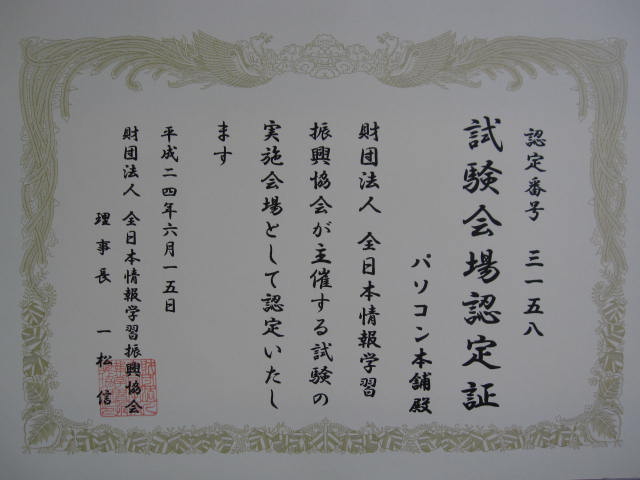 認定番号 三一五八
試験会場認定証
パソコン本舗殿
財団法人 全日本情報学習
振興協会が主催する試験の
実施会場として認定いたし
ます
平成二四年六月一五日
財団法人 全日本情報学習振興協会
理事長 一松信